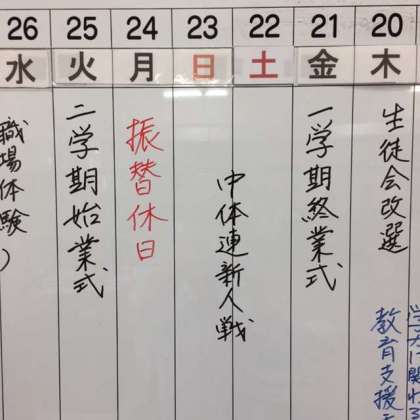 20
木
生徒会改選
教育支援
21
金
一学期終業式
22
土
中体連新人戦
23
日
24
月
振替休日
25
火
二学期始業式
26
水
職場体験）